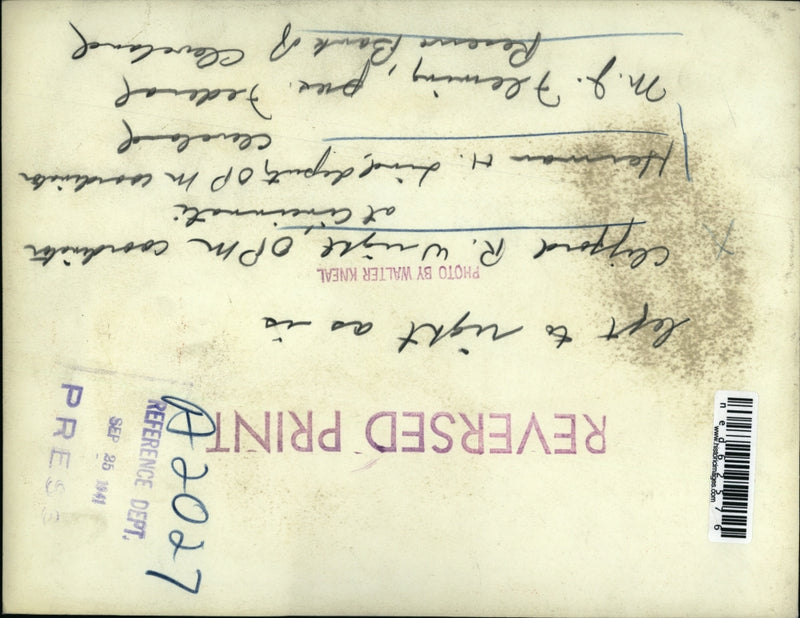 REVERSED PRINT
left to right as is
PHOTO BY WALTER KNEAL
Clifford R. Wright, OPM coordinator
at Cincinnati
Herman H. Lind, deputy OPM coordinator
Cleveland
M. J. Fleming, pres. Federal
Reserve Bank of Cleveland
A2027
REFERENCE DEPT.
SEP 25 1941
PRESS
www.historicimages.com
neg62576